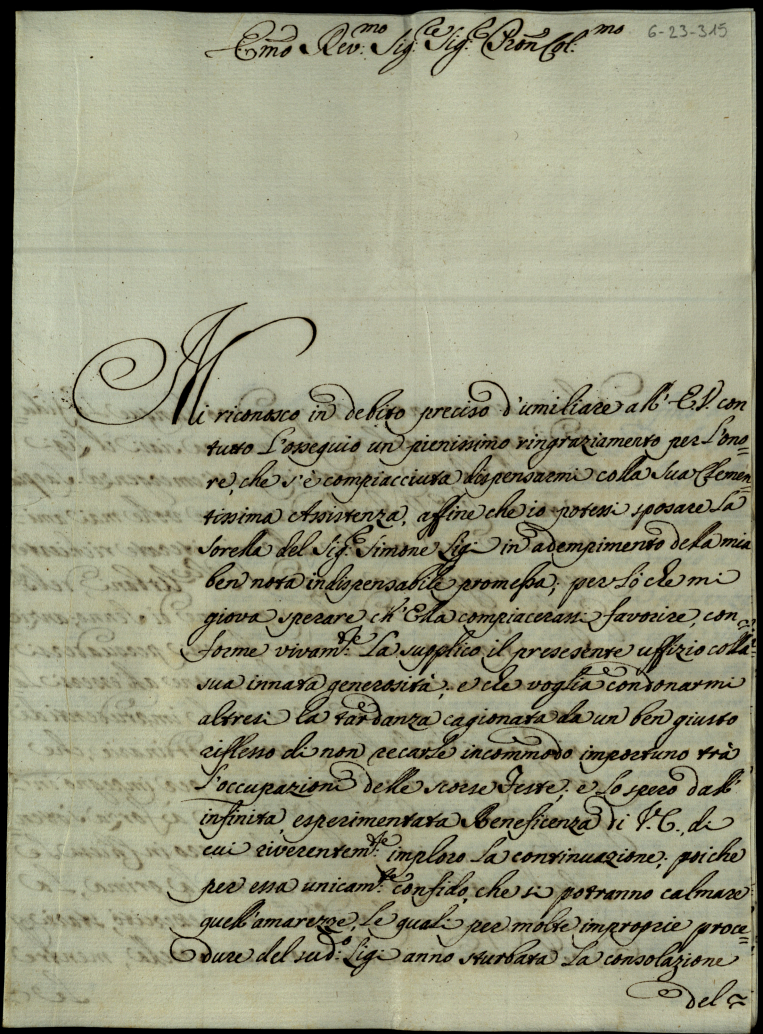 Emo Revmo Sigre Sigre Pron Colmo
6-23-315
Mi riconosco in debito preciso d'umiliare all' E.V. con
tutto l'ossequio un pienissimo ringraziamento per l'ono=
re, che s'è compiacciuta dispensarmi colla sua Clemen=
tissima Assistenza, affine che io potessi sposare la
sorella del Sigr Simone Ligi in adempimento della mia
ben nota indispensabile promessa; per lò che mi
giova sperare ch' Ella compiacerassi favorire, con=
forme vivamte La supplico il presesente uffizio colla
sua innata generosità, e che voglia condonarmi
altresi la tardanza cagionata da un ben giusto
riflesso di non recarle incommodo importuno trà
l'occupazioni delle scorse Feste; e lo spero dall'
infinita, esperimentata Beneficenza di V.E., di
cui riverentemte imploro la continuazione; poiche
per essa unicamte confido, che si potranno calmare
quell'amarezze, le quali per molte improprie proce=
dure del sudo Ligi anno sturbata la consolazione
del=